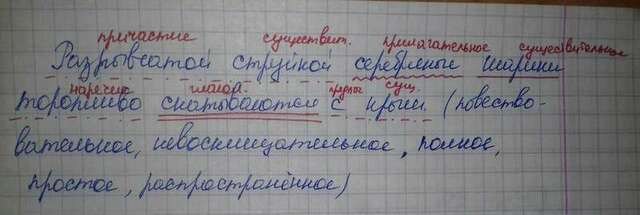 причастие существит. прилагательное существительное
Разрывчатой струйкой серебряные шарики
наречие глагол. предлог сущ.
торопливо скатываются с крыши (повество-
вательное, невосклицательное, полное,
простое, распространённое)